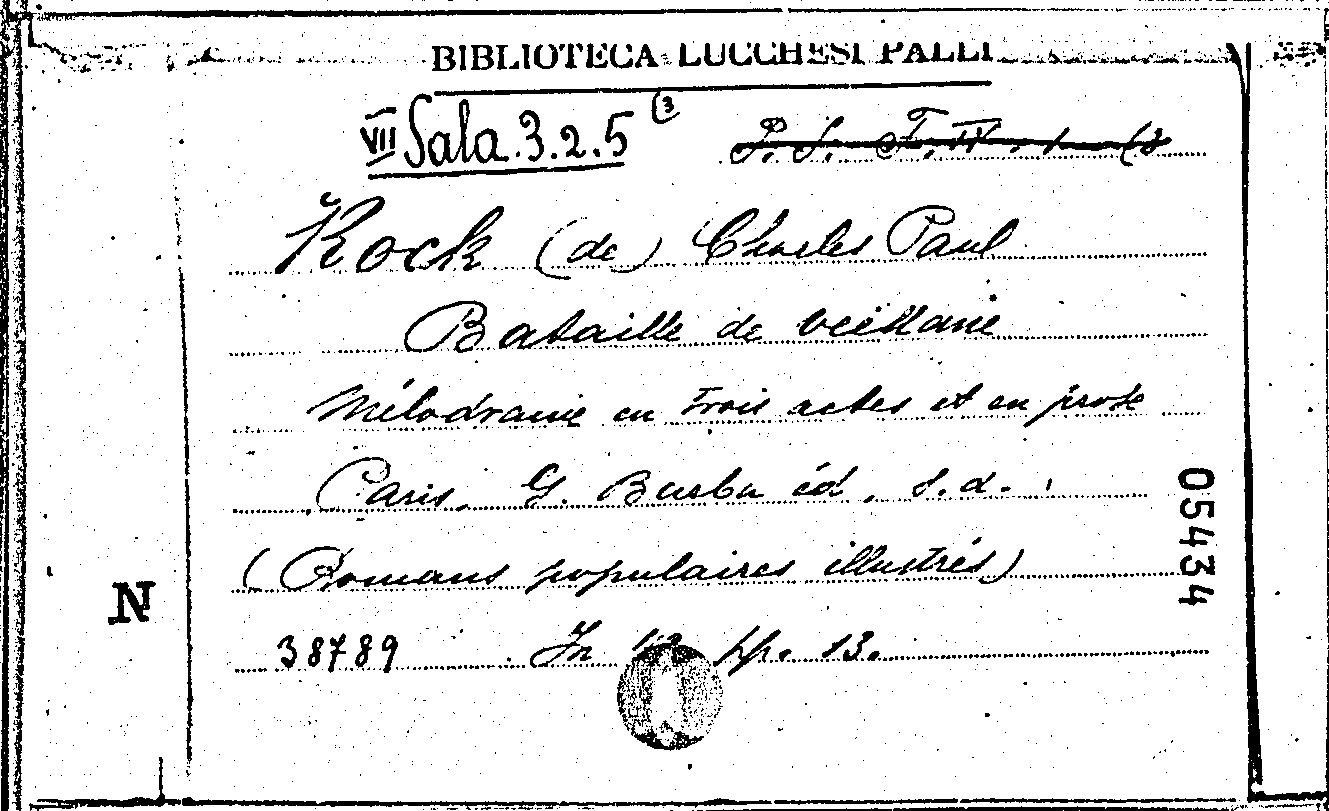 BIBLIOTECA LUCCHESI PALLI
VII Sala.3.2.5 (3
P. S. F. IV. 1 (3
Kock (de) Charles Paul
Bataille de
Mélodrame en trois actes et en prose
Paris. G. Barba éd. s.d.
(Romans populaires illustrés)
38789 In pp. 13.
N
05434